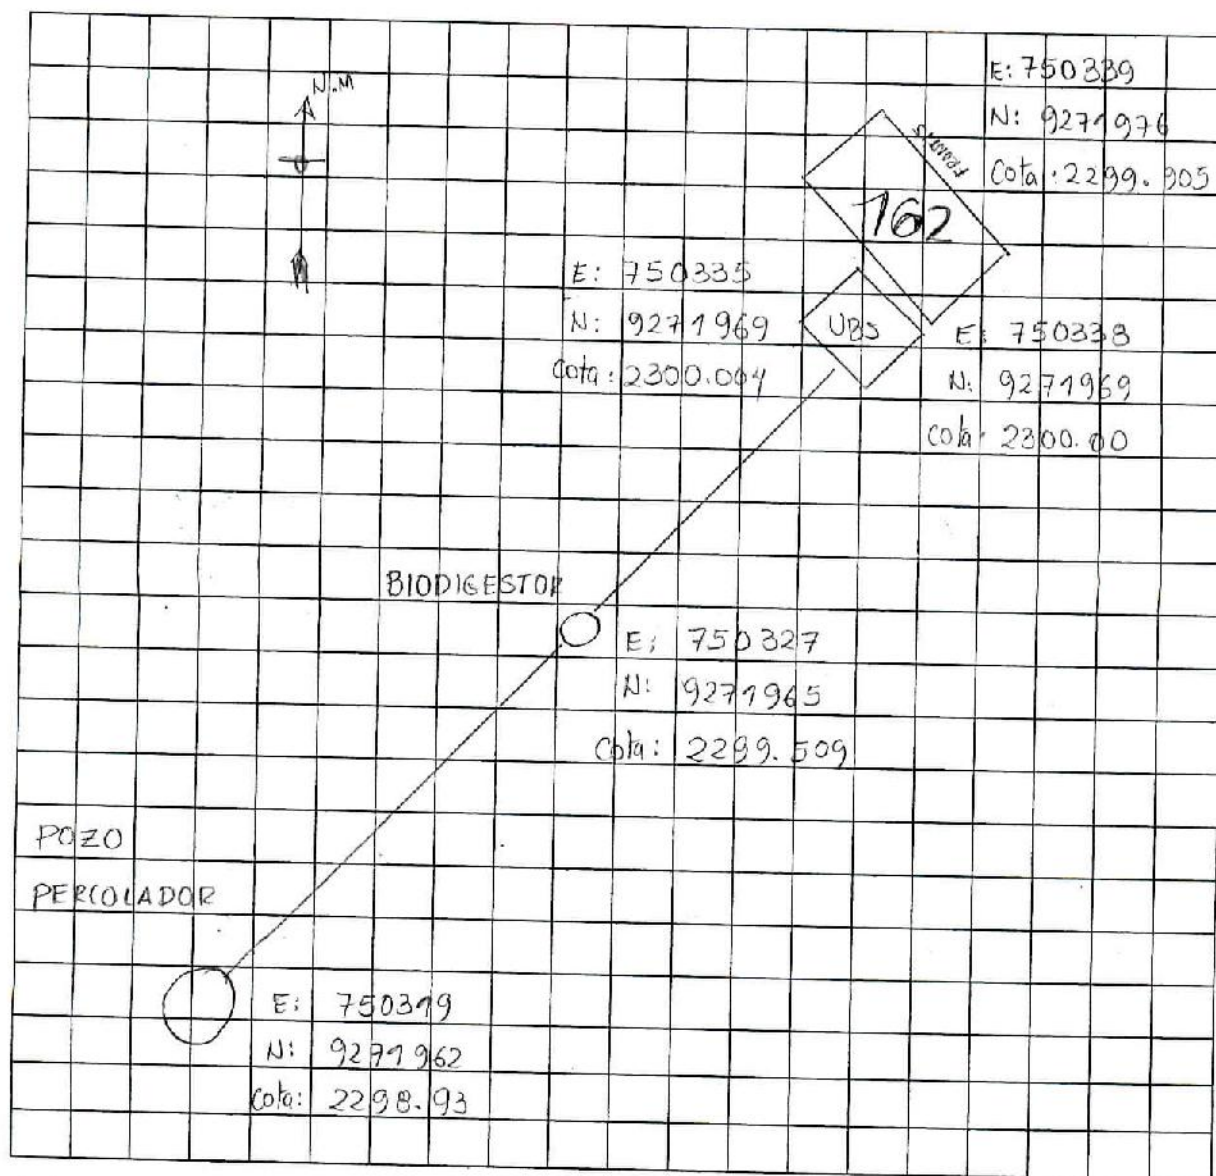 N.M
E: 750339
N: 9271976
Cota: 2299.905
FRONTIS
162
E: 750335
N: 9271969
Cota: 2300.004
UBS
E: 750338
N: 9271969
Cota: 2300.00
BIODIGESTOR
E: 750327
N: 9271965
Cota: 2299.509
POZO
PERCOLADOR
E: 750319
N: 9271962
Cota: 2298.93